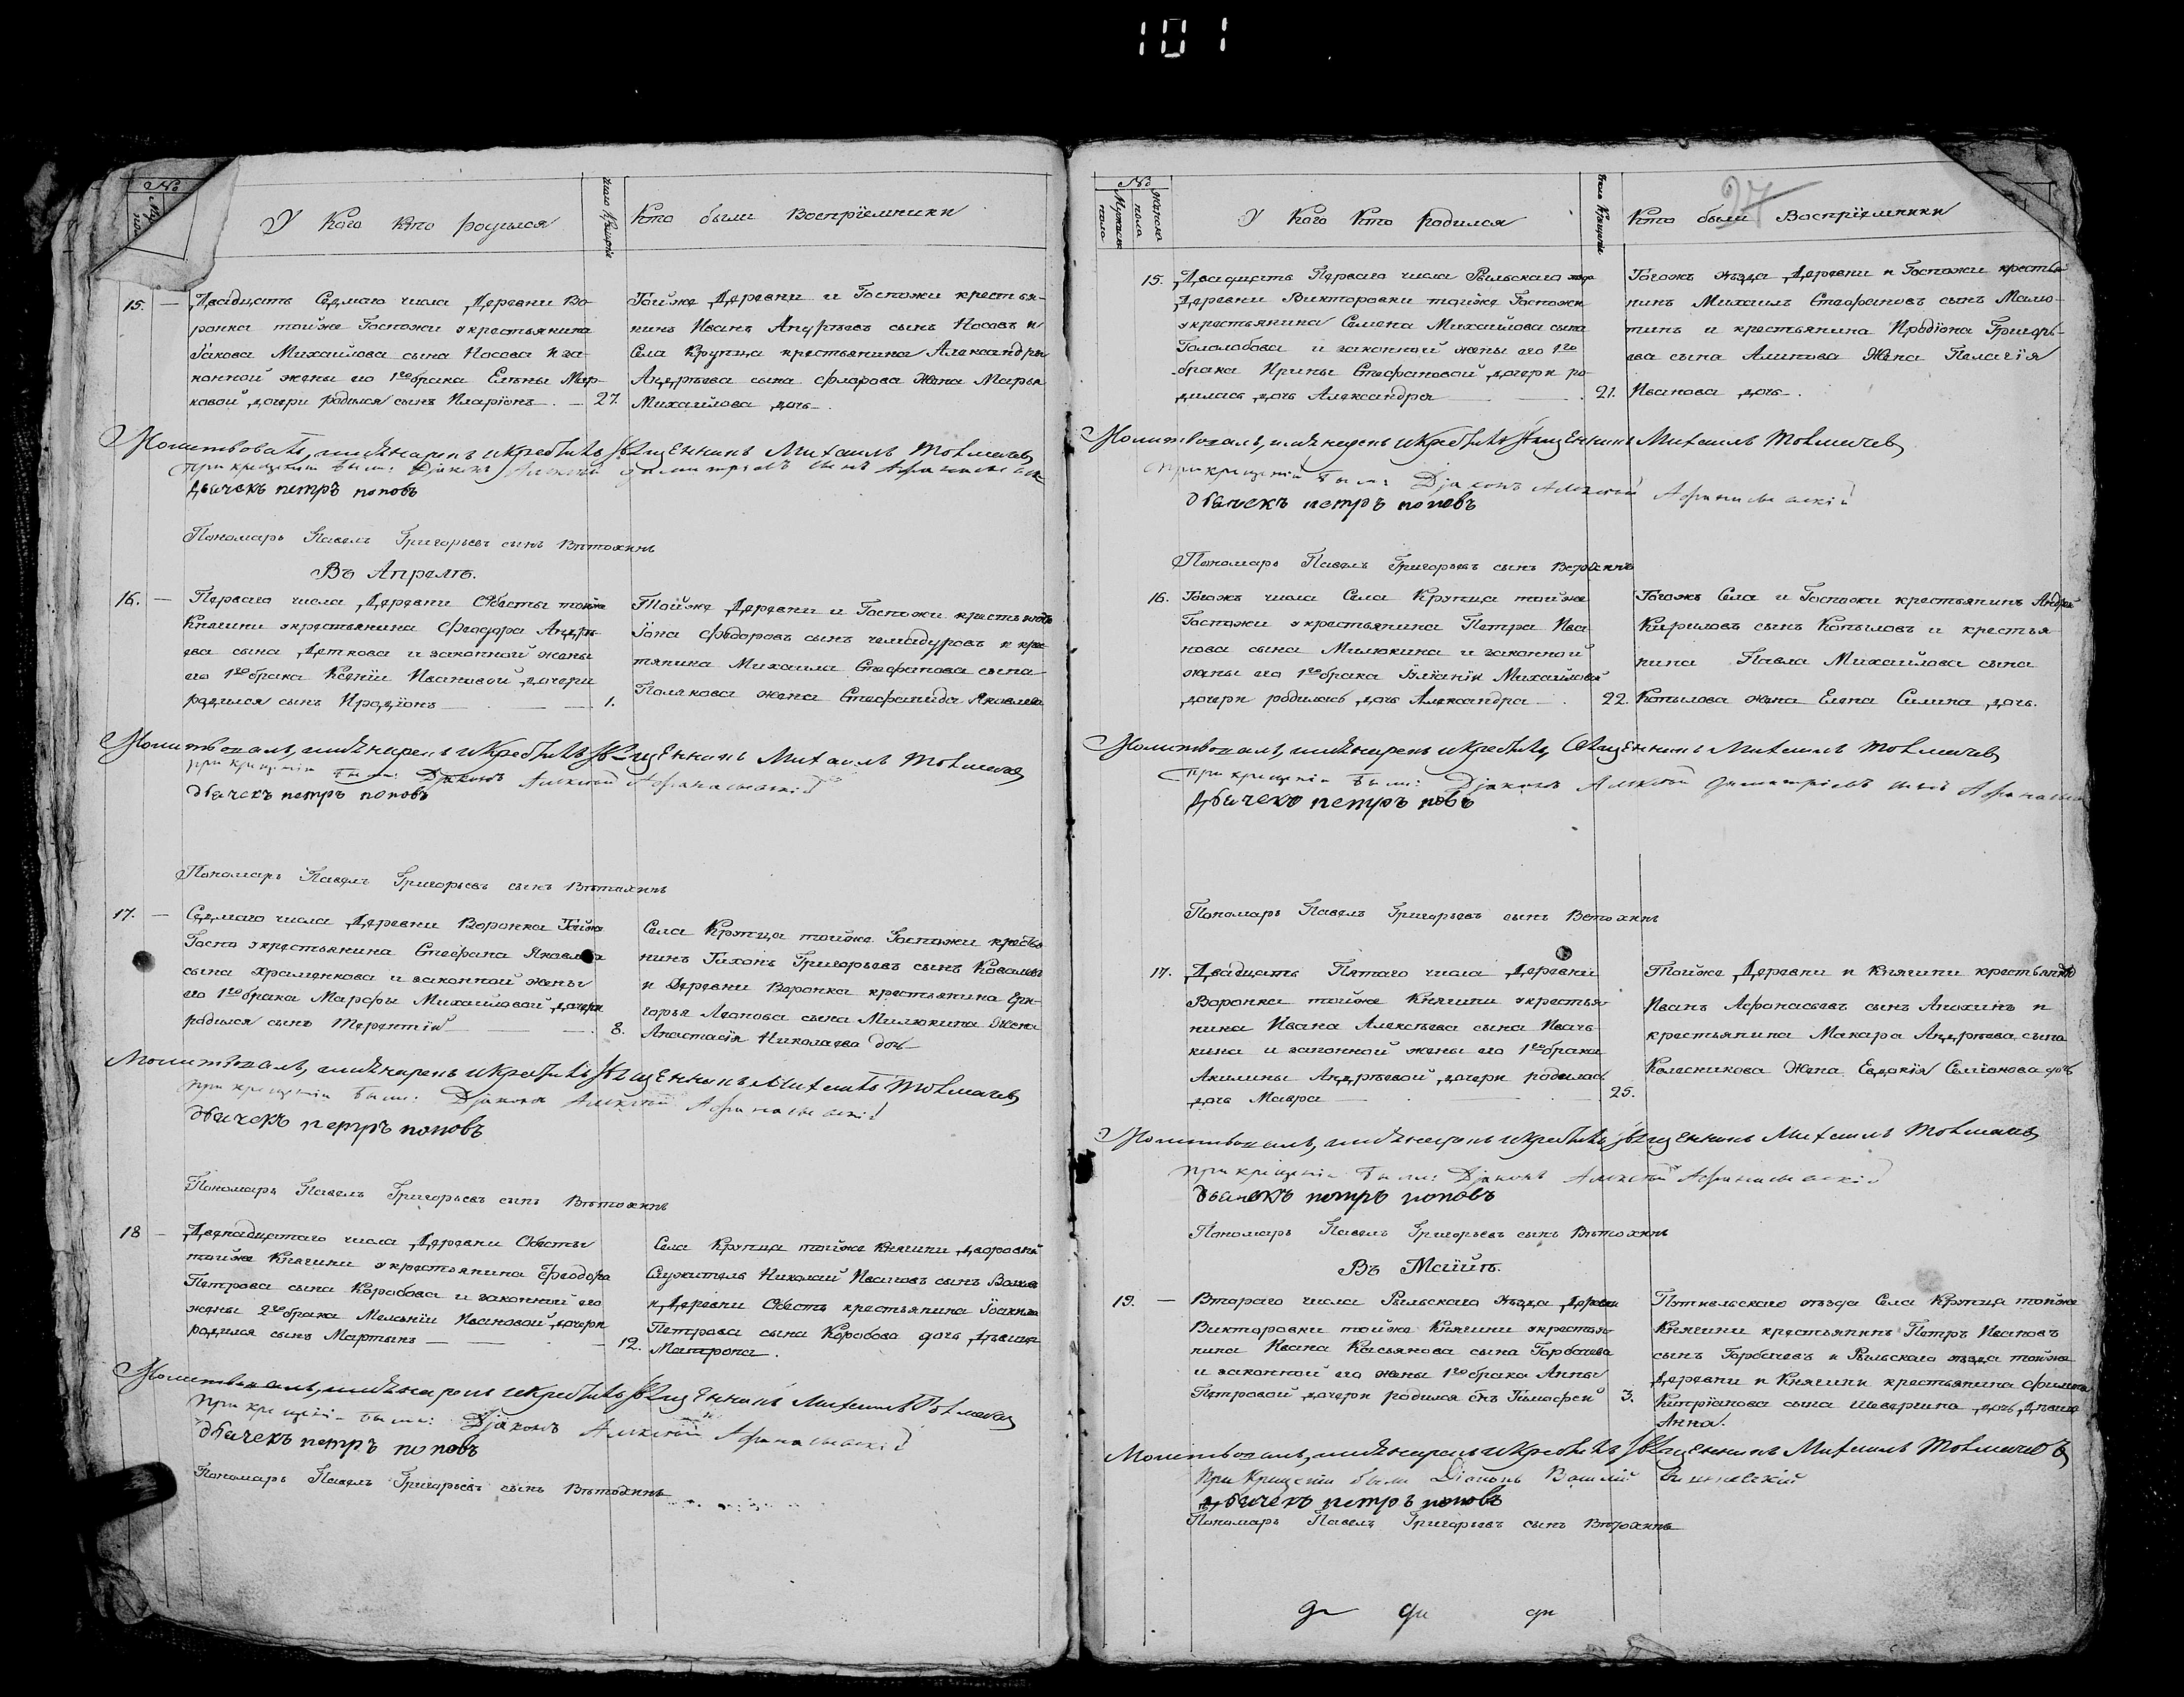 101
№
У Кого Кто родился
число Крещенія
Кто были Воспріемники
15. — Двадцать Седмаго числа Деревни Во-
ронка тойже Госпожи укрестьянина
Іакова Михайлова сына Носова и за-
конной жены его 1го брака Елены Мар-
ковой дочери родился сынъ Иларіонъ — 27.
Тойже Деревни и Госпожи крестья-
нинъ Иванъ Андрѣевъ сынъ Носовъ и
Села Крупца крестьянина Александра
Андрѣева сына Фларова Жена Марья
Михайлова дочь
Молитвовалъ, имя нарекъ и крестилъ Священникъ Михаилъ Товмачевъ
при крещеніи были: Діаконъ Алексѣй Димитріевъ сынъ
Дьячекъ петръ поповъ
Пономарь Павелъ Григорьевъ сынъ Вѣтохинъ
Въ Апрелѣ.
16. — Перваго числа Деревни Обесты тойже
Княгини укрестьянина Феодора Андрѣ-
ева сына Деткова и законной жены
его 1го брака Ксеніи Ивановой дочери
родился сынъ Иродіонъ — 1.
Тойже Деревни и Госпожи крестьянинъ
Іона Федоровъ сынъ чемадуровъ и крес-
тянина Михаила Стефанова сына
Полякова жена Стефанида Яковлева
Молитвовалъ, имя нарекъ и крестилъ Священникъ Михаилъ Товмачевъ
при крещеніи были: Діаконъ Алексѣй Афанасьевскій
дьячекъ петръ поповъ
Пономарь Павелъ Григорьевъ сынъ Вѣтохинъ
17. — Седмаго числа Деревни Воронка Тойже
Госпо укрестьянина Стефана Яковлева
сына Храменкова и законной жены
его 1го брака Марфы Михайловой дочери
родился сынъ Терентій — 8.
Села Крупца тойже Госпожи крестья-
нинъ Тихонъ Григорьевъ сынъ Ковалевъ
и Деревни Воронка крестьянина Гри-
горья Леонова сына Милюкина Жена
Анастасія Николаева дочь
Молитвовалъ, имя нарекъ и крестилъ Священникъ Михаилъ Товмачевъ
при крещеніи были: Діаконъ Алексѣй Афанасьевскій
дьячекъ петръ поповъ
Пономарь Павелъ Григорьевъ сынъ Вѣтохинъ
18 — Двенадцатаго числа Деревни Обесты
тойже Княгини укрестьянина Феодора
Петрова сына Коробова и законной его
жены 2го брака Меланіи Ивановой дочери
родился сынъ Мартынъ — 12.
Села Крупца тойже Княгини дворовый
Служитель Николай Ивановъ сынъ
и Деревни Обестъ крестьянина Іоакима
Петрова сына Коробова дочь Дѣвица
Матрона.
Молитвовалъ, имя нарекъ и крестилъ Священникъ Михаилъ Товмачевъ
При крещеніи были: Діаконъ Алексѣй Афанасьевскій
дьячекъ петръ поповъ
Пономарь Павелъ Григорьевъ сынъ Вѣтохинъ
№
Мужеска пола
Женска пола
У Кого Кто родился
Число Крещенія
Кто были Воспріемники
27
15. Двадцать Перваго числа Рыльскаго уезда
Деревни Викторовки тойже Госпожи
укрестьянина Семена Михайлова сына
Гололобова и законной жены его 1го
брака Ирины Стефановой дочери ро-
дилась дочь Александра — 21.
Тогожъ уезда Деревни и Госпожи крестья-
нинъ Михаилъ Стефановъ сынъ Малю-
тинъ и крестьянина Иродіона Григорь-
ева сына Алипова Жена Пелагія
Иванова дочь.
Молитвовалъ, имя нарекъ и крестилъ Священникъ Михаилъ Товмачевъ
При крещеніи были: Діаконъ Алексѣй Афанасьевскій
дьячекъ петръ поповъ
Пономарь Павелъ Григорьевъ сынъ Ветохинъ
16. Тогожъ числа Села Крупца тойже
Госпожи укрестьянина Петра Ива-
нова сына Милюкина и законной
жены его 1го брака Іуліаніи Михайловой
дочери родилась дочь Александра — 22.
Тогожъ Села и Госпожи крестьянинъ Андрей
Кириловъ сынъ Копыловъ и крестья-
нина Павла Михайлова сына
Копылова жена Елена Силина дочь.
Молитвовалъ, имя нарекъ и крестилъ, Священникъ Михаилъ Товмачевъ
При крещеніи были: Діаконъ Алексѣй Димитріевъ сынъ
Дьячекъ петръ повъ
Пономарь Павелъ Григорьевъ сынъ Ветохинъ
17. Двадцать Пятаго числа Деревни
Воронка тойже Княгини укрестья-
нина Ивана Алексѣева сына Ивач-
кина и законной жены его 1го брака
Акилины Андрѣевой дочери родилась
дочь Мавра — 25.
Тойже Деревни и Княгини крестьянинъ
Иванъ Афонасьевъ сынъ Анохинъ и
крестьянина Макара Андрѣева сына
Колесникова Жена Евдокія Семіонова дочь
Молитвовалъ, имя нарекъ и крестилъ Священникъ Михаилъ Товмачевъ
при крещеніи были: Діаконъ Алексѣй Афанасьевскій
дьячекъ петръ поповъ
Пономарь Павелъ Григорьевъ сынъ Вѣтохинъ
Въ Маіи.
19. — Втораго числа Рыльскаго уезда Деревни
Викторовки тойже Княгини укрестья-
нина Ивана Касьянова сына Горбачева
и законной его жены 1го брака Анны
Петровой дочери родился сынъ Тимофей 3.
Путивльскаго уезда Села Крупца тойже
Княгини крестьянинъ Петръ Ивановъ
сынъ Горбачевъ и Рыльскаго уезда тойже
Деревни и Княгини крестьянина
Кипріанова сына Шевергина дочь Дѣвица
Анна.
Молитвовалъ, имя нарекъ и крестилъ Священникъ Михаилъ Товмачевъ
При Крещеніи были Діаконъ
дьячекъ петръ поповъ
Пономарь Павелъ Григорьевъ сынъ Вѣтохинъ